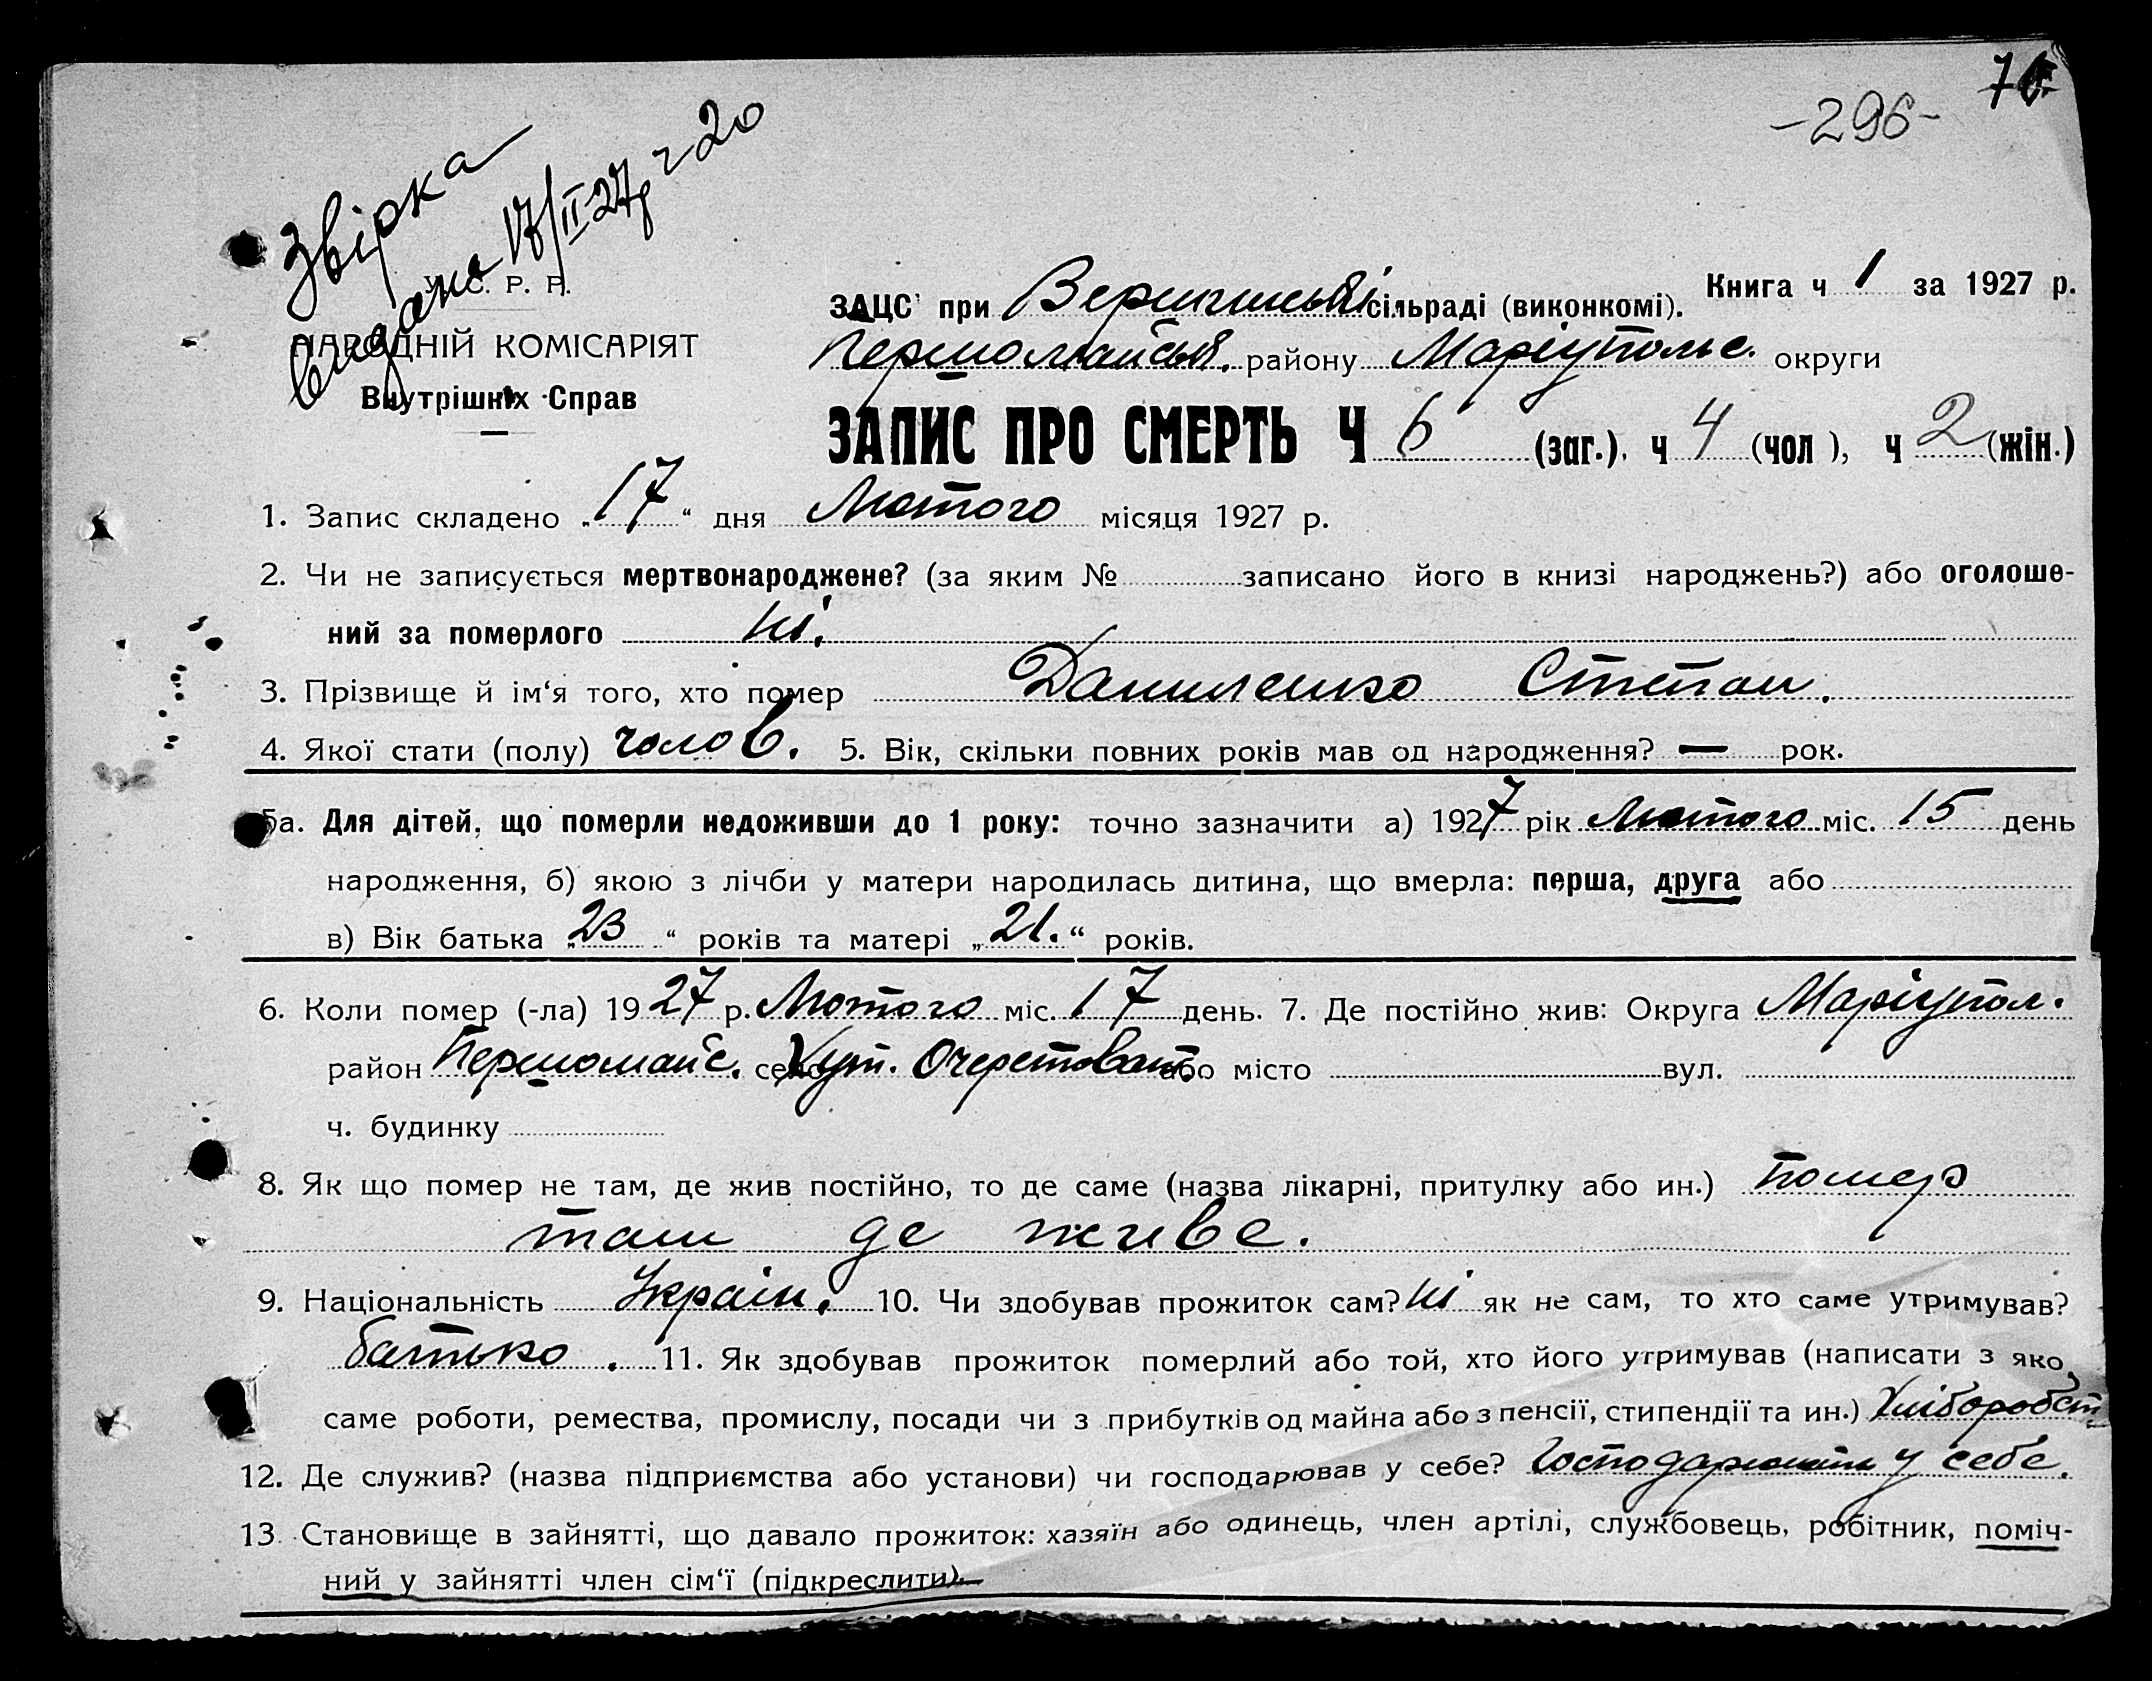 -296-
Звірка
Видана 17/II 27р ч 20
У. С. Р. Р.
НАРОДНІЙ КОМІСАРІЯТ
Внутрішніх Справ
Книга ч 1 за 1927 р.
ЗАЦС при сільраді (виконкомі).
Першомайськ. району Маріупольс. округи
ЗАПИС ПРО СМЕРТЬ Ч 6 (заг.), ч 4 (чол), ч 2 (жін.)
1. Запис складено „17“ дня Лютого місяця 1927 р.
2. Чи не записується мертвонароджене? (за яким № записано його в книзі народжень?) або оголоше-
ний за померлого ні.
3. Прізвище й ім‘я того, хто помер Даниленко Степан.
4. Якої стати (полу) чолов. 5. Вік, скільки повних років мав од народження? — рок.
5а. Для дітей, що померли недоживши до 1 року: точно зазначити а) 1927 рік Лютого міс. 15 день
народження, б) якою з лічби у матери народилась дитина, що вмерла: перша, друга або
в) Вік батька „23“ років та матері „21.“ років.
6. Коли помер (-ла) 1927 р. Лютого міс. 17 день. 7. Де постійно жив: Округа Маріупол.
район Першомайс. село Хут. Очеретоват. або місто вул.
ч. будинку
8. Як що помер не там, де жив постійно, то де саме (назва лікарні, притулку або ин.) помер
там де живе.
9. Національність Україн. 10. Чи здобував прожиток сам? Ні як не сам, то хто саме утримував?
батько. 11. Як здобував прожиток померлий або той, хто його утримував (написати з яко
саме роботи, ремества, промислу, посади чи з прибутків од майна або з пенсії, стипендії та ин.) Хлібороб́ст
12. Де служив? (назва підприємства або установи) чи господарював у себе? Господарювати у себе.
13. Становище в зайнятті, що давало прожиток: хазяїн або одинець, член артілі, службовець, робітник, поміч-
ний у зайнятті член сім‘ї (підкреслити).